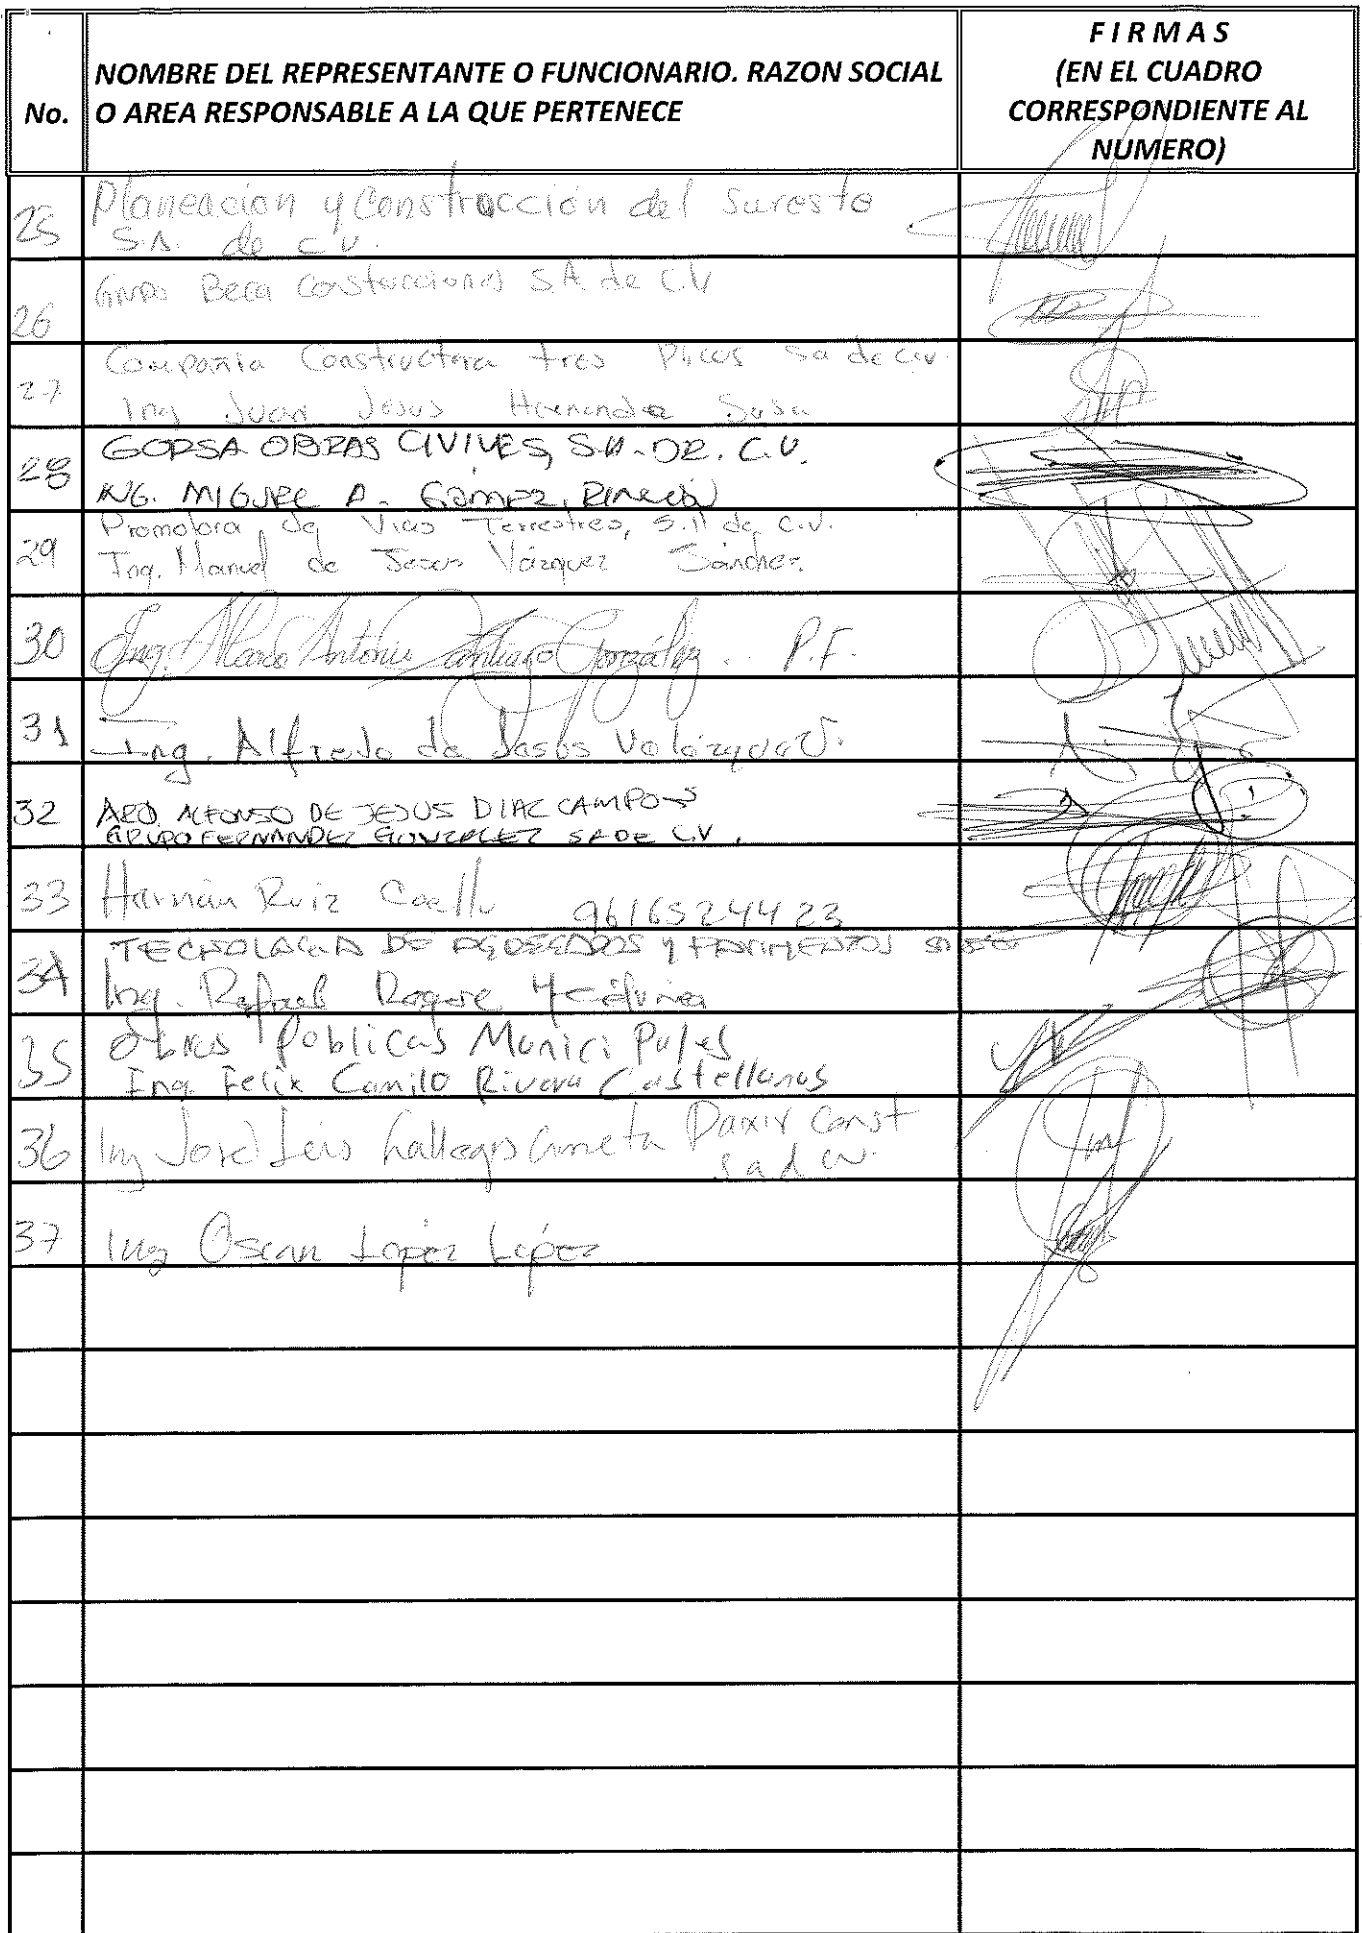 No.
NOMBRE DEL REPRESENTANTE O FUNCIONARIO. RAZON SOCIAL
O AREA RESPONSABLE A LA QUE PERTENECE
FIRMAS
(EN EL CUADRO
CORRESPONDIENTE AL
NUMERO)
25 Planeación y Construcción del Sureste
S.A. de C.V.
26 Grupo Beca Construcciones S.A de C.V
27 Compañia Constructora tres Picos Sa de cv.
Ing Juan Jesus Hernandez Sosa
28 GORSA OBRAS CIVILES, S.A. DE. C.V.
ING. MIGUEL A. GOMEZ RINCÓN
29 Promotora de Vias Terrestres, S.A de C.V.
Ing. Manuel de Jesus Vázquez Sánchez
30 Ing. Marco Antonio Santiago González .. P.F.
31 Ing. Alfredo de Jesús Velázquez V.
32 ARQ. ALFONSO DE JESUS DIAZ CAMPOS
GRUPO FERNANDEZ GONZALEZ SA DE C.V.
33 Hernán Ruiz Coello 9616524423
34 TECNOLOGIA DE AGREGADOS Y PAVIMENTOS
Ing. Rafael Roque
35 Obras Publicas Municipales
Ing. Felix Camilo Rivera Castellanos
36 Ing José Luis Gallegos Const
sa d cv.
37 Ing Oscar López López